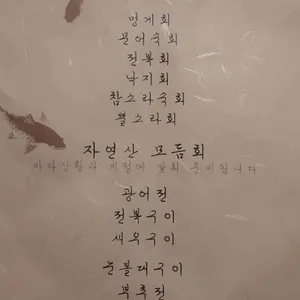 멍게회
문어숙회
전복회
낙지회
참소라숙회
뿔소라회
자연산 모듬회
바다상황과 계절에 맞춰 준비됩니다
광어전
전복구이
새우구이
눈볼대구이
부추전